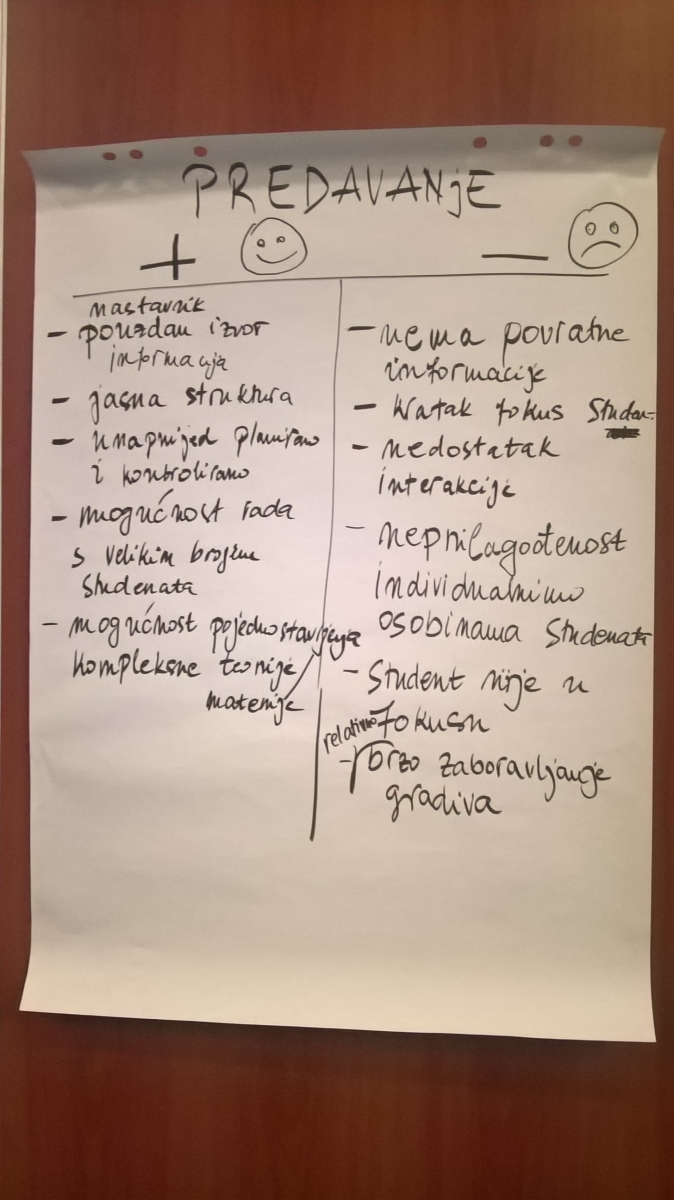 PREDAVANjE
+
—
nastavnik
- pouzdan izvor
informacija
- jasna struktura
- unaprijed planirano
i kontrolirano
- mogućnost rada
s velikim brojem
studenata
- mogućnost pojednostavljenja
kompleksne teorije
materije
- nema povratne
informacije
- kratak fokus studen-
- nedostatak
interakcije
- neprilagođenost
individualnim
osobinama studenata
- student nije u
fokusu
relativno
- brzo zaboravljanje
gradiva